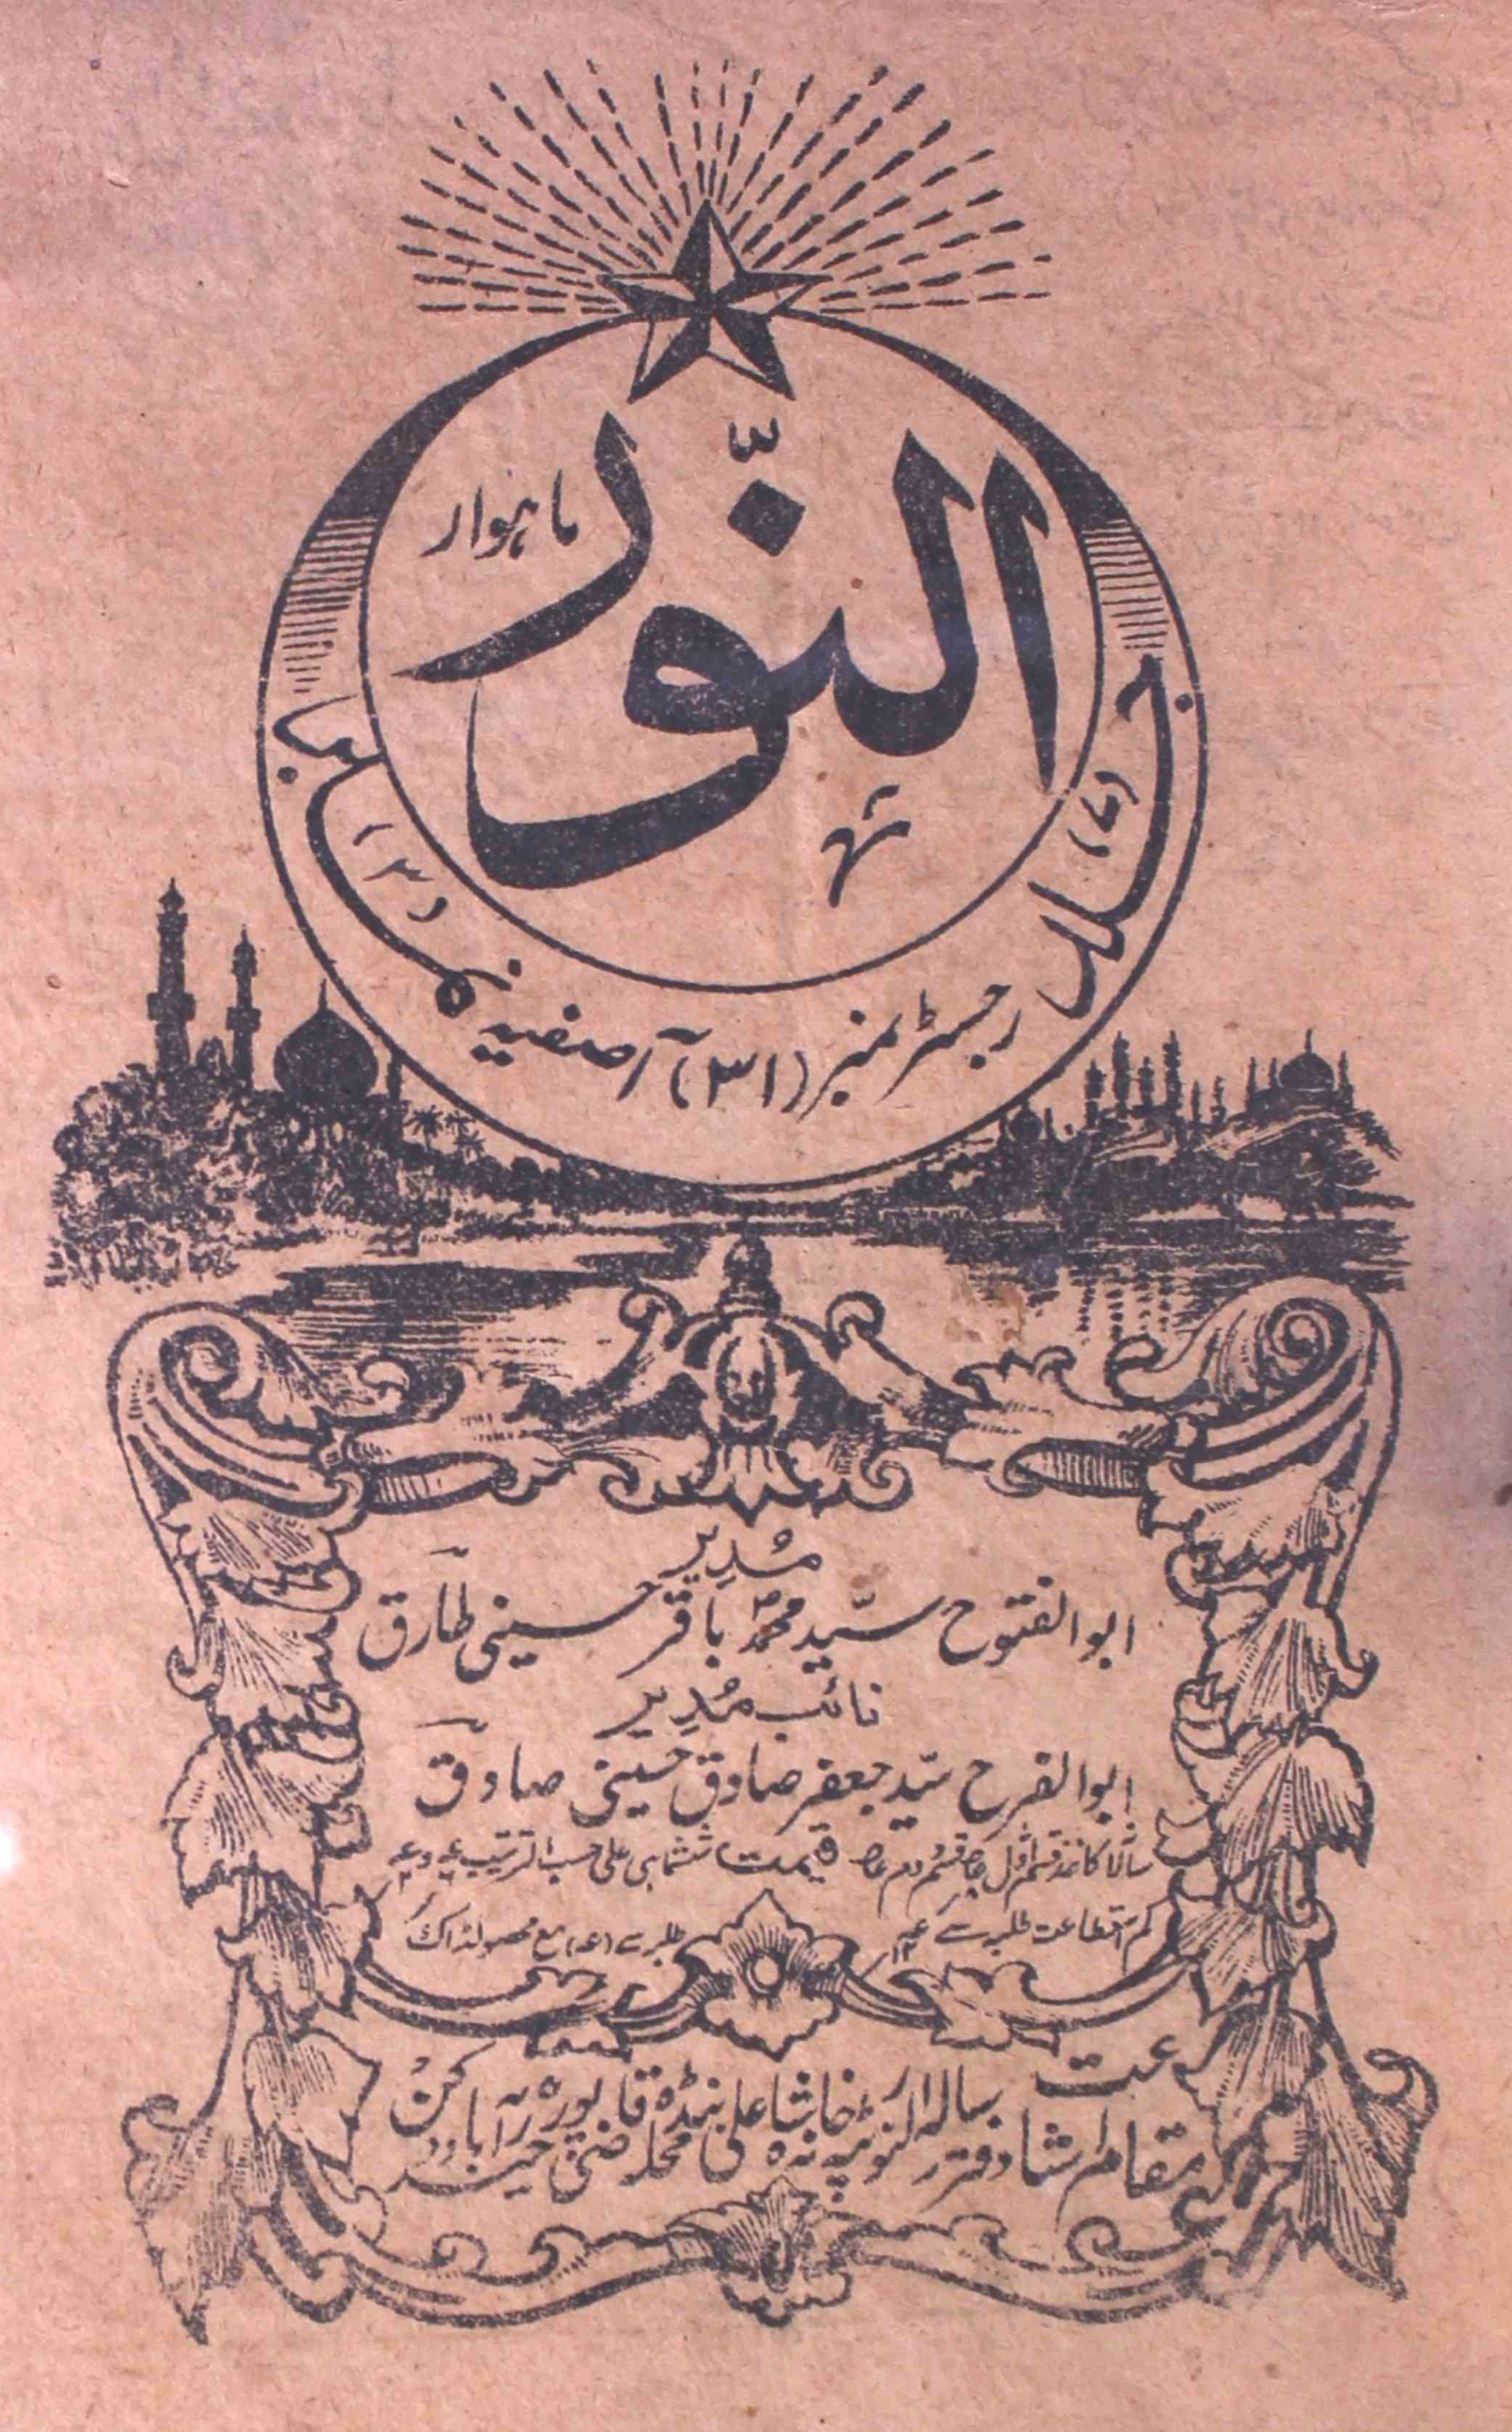 ماہوار
النّور
جلد (۷)
نمبر (۳)
رجسٹر نمبر (۳۱) آصفیہ
مُدیر
ابوالفتوح سیّد محمد باقر حسینی طارق
نائب مُدیر
ابوالفرح سیّد جعفر صادق حسینی صادق
سالانہ کاغذ قسم اول قسم دوم قیمت ششماہی علی حسب الترتیب
کم استطاعت طلبہ سے طلبہ سے مع محصولڈاک
مقام اشاعت دفتر رسالہ النور محلہ قاضی پورہ حیدرآباد دکن